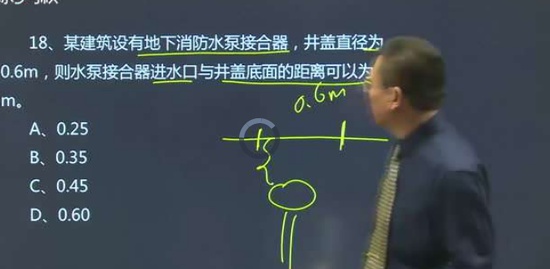 18、某建筑设有地下消防水泵接合器，井盖直径为
0.6m，则水泵接合器进水口与井盖底面的距离可以为
m。
0.6m
A、0.25
B、0.35
C、0.45
D、0.60